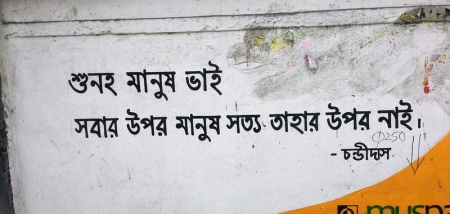 শুনহ মানুষ ভাই
সবার উপর মানুষ সত্য তাহার উপর নাই।
- চন্ডীদাস